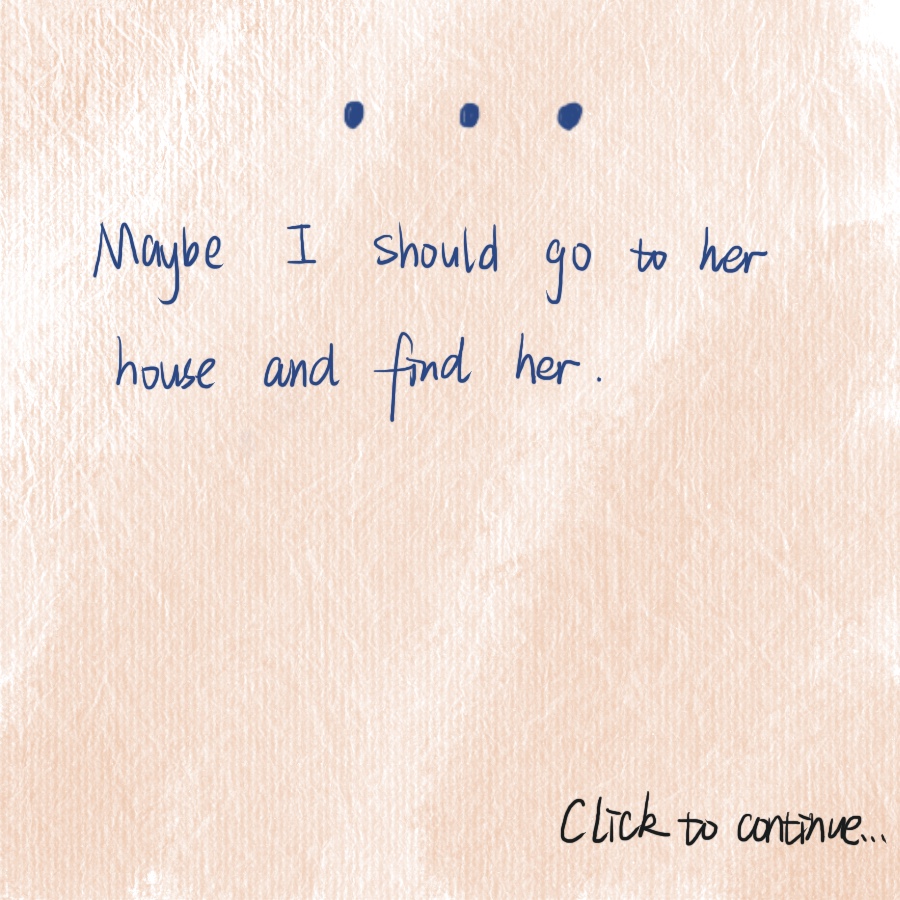 ...
Maybe I should go to her
house and find her.
Click to continue...